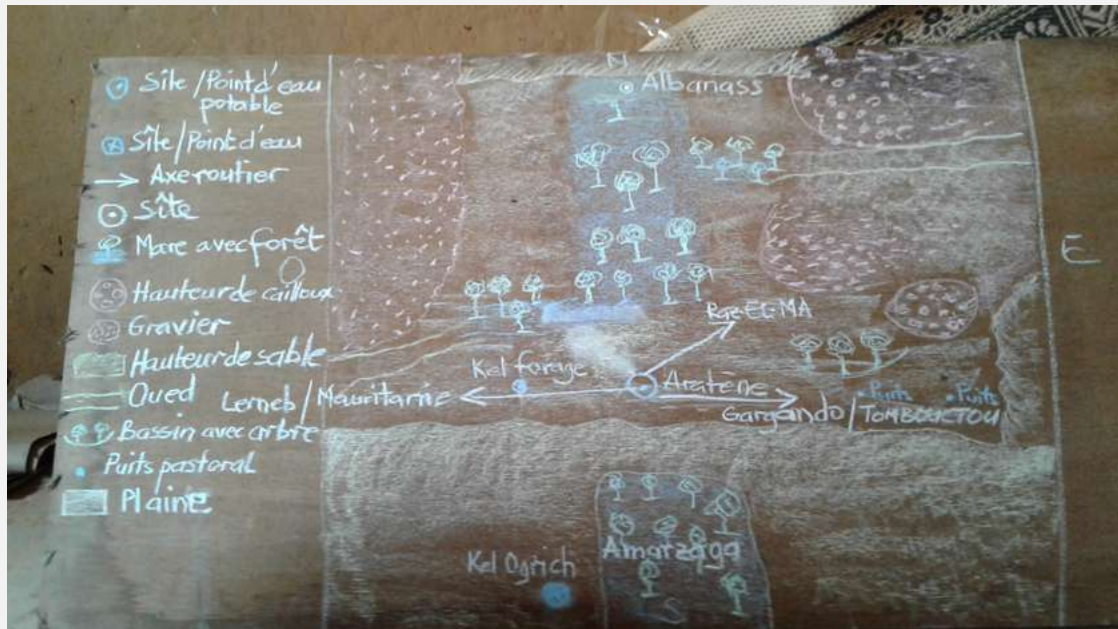 Site/Point d'eau
potable
Sîte/Point d'eau
Axe routier
Sîte
Mare avec forêt
Hauteur de cailloux
Gravier
Hauteur de sable
Oued
Bassin avec arbre
Puits pastoral
Plaine
N
Albanass
E
Raz-EL-MA
Kel forage
Aratène
Lerneb/Mauritanie
Puits
Puits
Gargando/TOMBOUCTOU
Amarzaga
Kel Ogrich
S